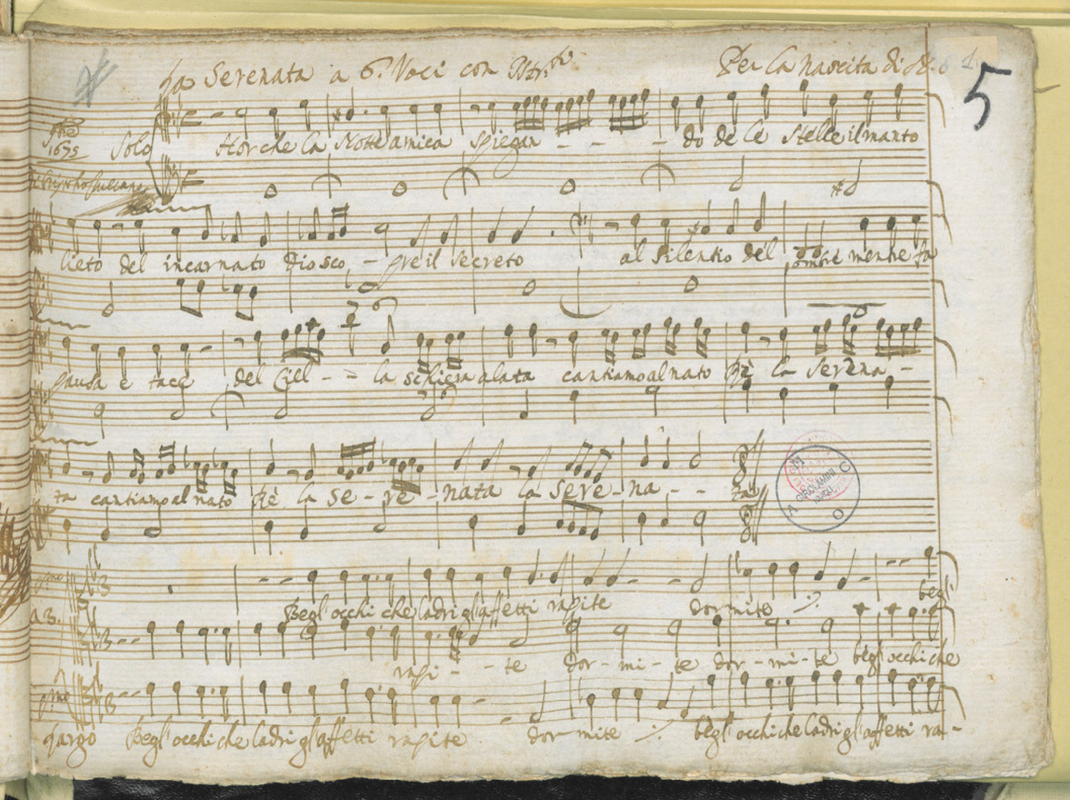 Serenata a 6. Voci con Str.ti
Per la Nascita di N.
5
1675
Solo
Hor che la Notte amica spiegan - - - do de le stelle il manto
lieto del incarnato Dio sco - pre il secreto al silentio del ombre mentre fa
pausa e tace del Ciel - - la schiera alata cantiamo al nato Rè la serena -
ta cantiamo al nato Rè la se - re - nata la sere - na - - ta
Begl'occhi che ladri gl'affetti rapite dormite begl'
a 3.
rapi - te dor - mi - te dor - mi - te begl'occhi che
largo Begl'occhi che ladri gl'affetti rapite dor mite begl'occhi che ladri gl'affetti ra -